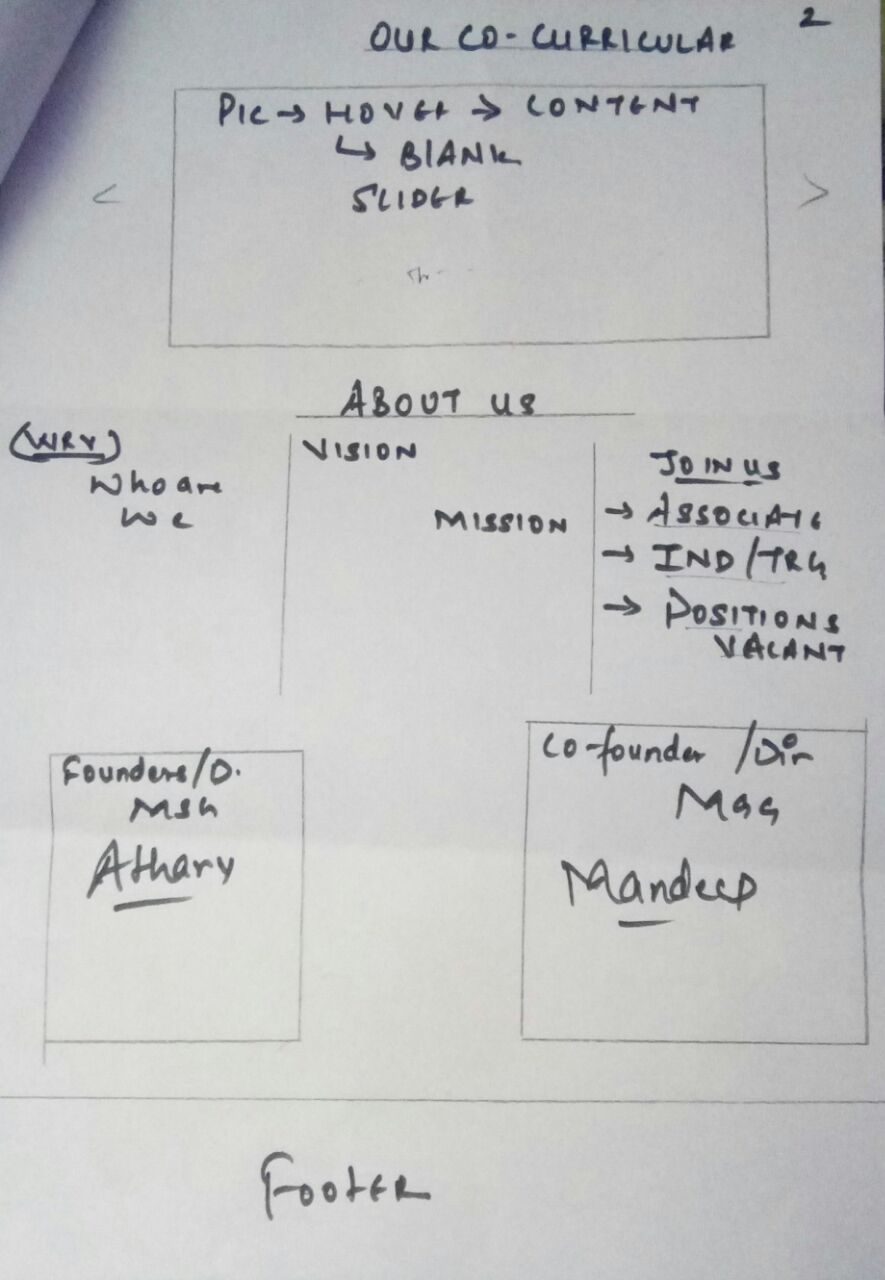 2
OUR CO-CURRICULAR
PIC → HOVER → CONTENT
↳ BLANK
SLIDER
<
>
ABOUT US
(WRV)
Who are
we
VISION
MISSION
JOIN US
→ ASSOCIATE
→ IND/TRG
→ POSITIONS
VACANT
Founders/D.
MSG
Atharv
Co-founder/Dir
Mandeep
FOOTER